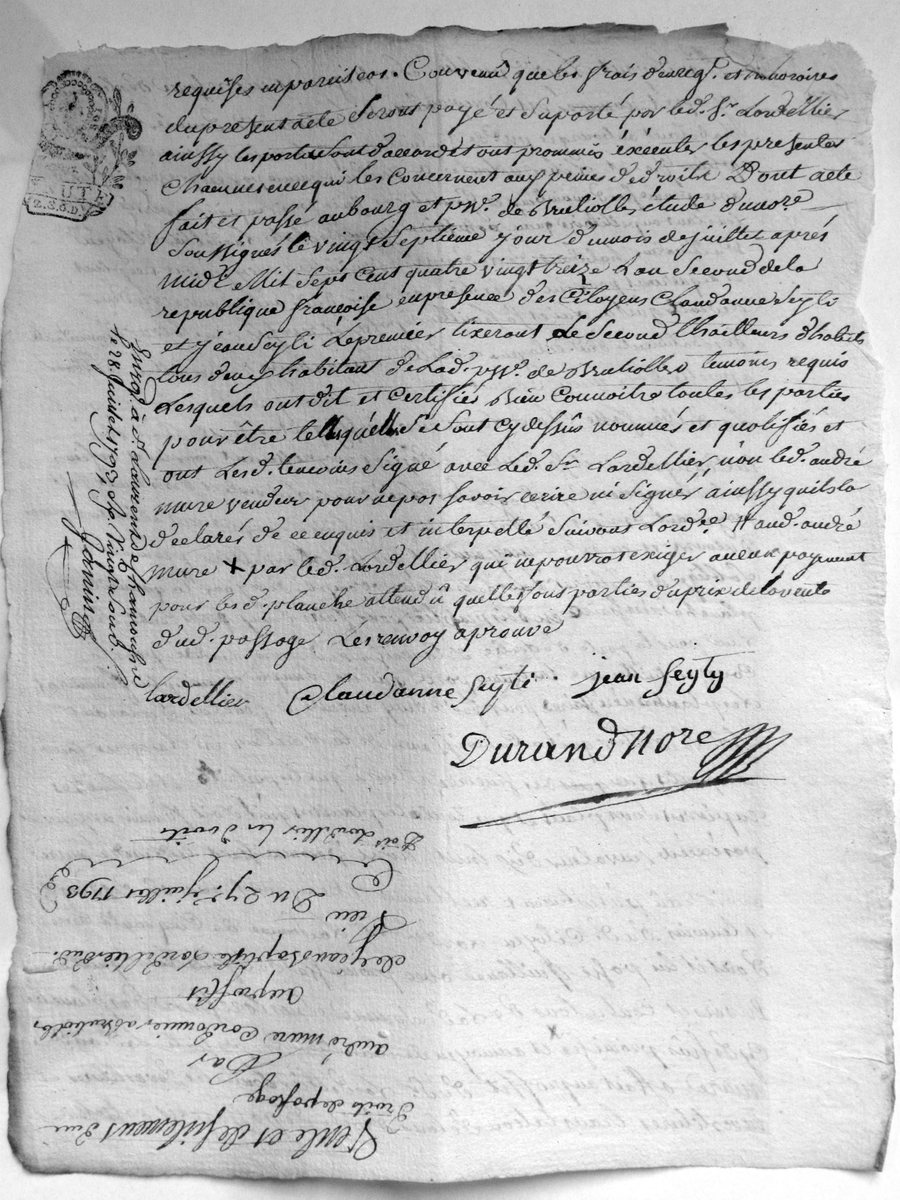 requises en pareil cas. Convenû que les frais d'enreg.t et honoraires
du present acte seront payé et suporté par led. Sr Lardellier
ainssy les parties sont d'accord et ont prommis exécuter les presentes
chaiunes en ce qui les concernent aux peines de droits Dont acte
fait et passé au bourg et de étude du no.re
soussignés le vingt septième jour du mois de juillet après
midi Mil sept cent quatre vingt treize L'an second de la
republique françoise en presence des Citoyens Claudanne Seyti
et jean Seyti Le premier tixerant Le second thailleurs d'habits
tous deux habitant de Lad. de temoins requis
Lesquels ont dit et certifiés bien connoitre toutes les parties
pour être telles qu'elles se sont cy dessus nommés et qualifiés et
ont Lesd. temoins signé avec Led. Sr Lardellier, non led. andré
mure vendeur pour ne pas savoir ecrire ni signer, ainssy qu'il la
déclarés de ce enquis et interpellé suivant Lord.ce # aud. andré
mure + par led. Lardellier qui ne pourrat exiger aucun payement
pour les d. planche attendû quelles sons parties du prix de la vente
dud. passage Les renvoy aprouvé
Lardellier Claudanne Seyti jean Seyty
Durand Nore
Enreg. à St Laurent de Chamousset
le 28 juillet 1793
Vente et delaissement d'un
droits de passage
Par
andré mure Cordonnier
au proffit
de jean baptiste Lardellier dud.
Lieu
Du 27e juillet 1793
Doit Lardellier les droits